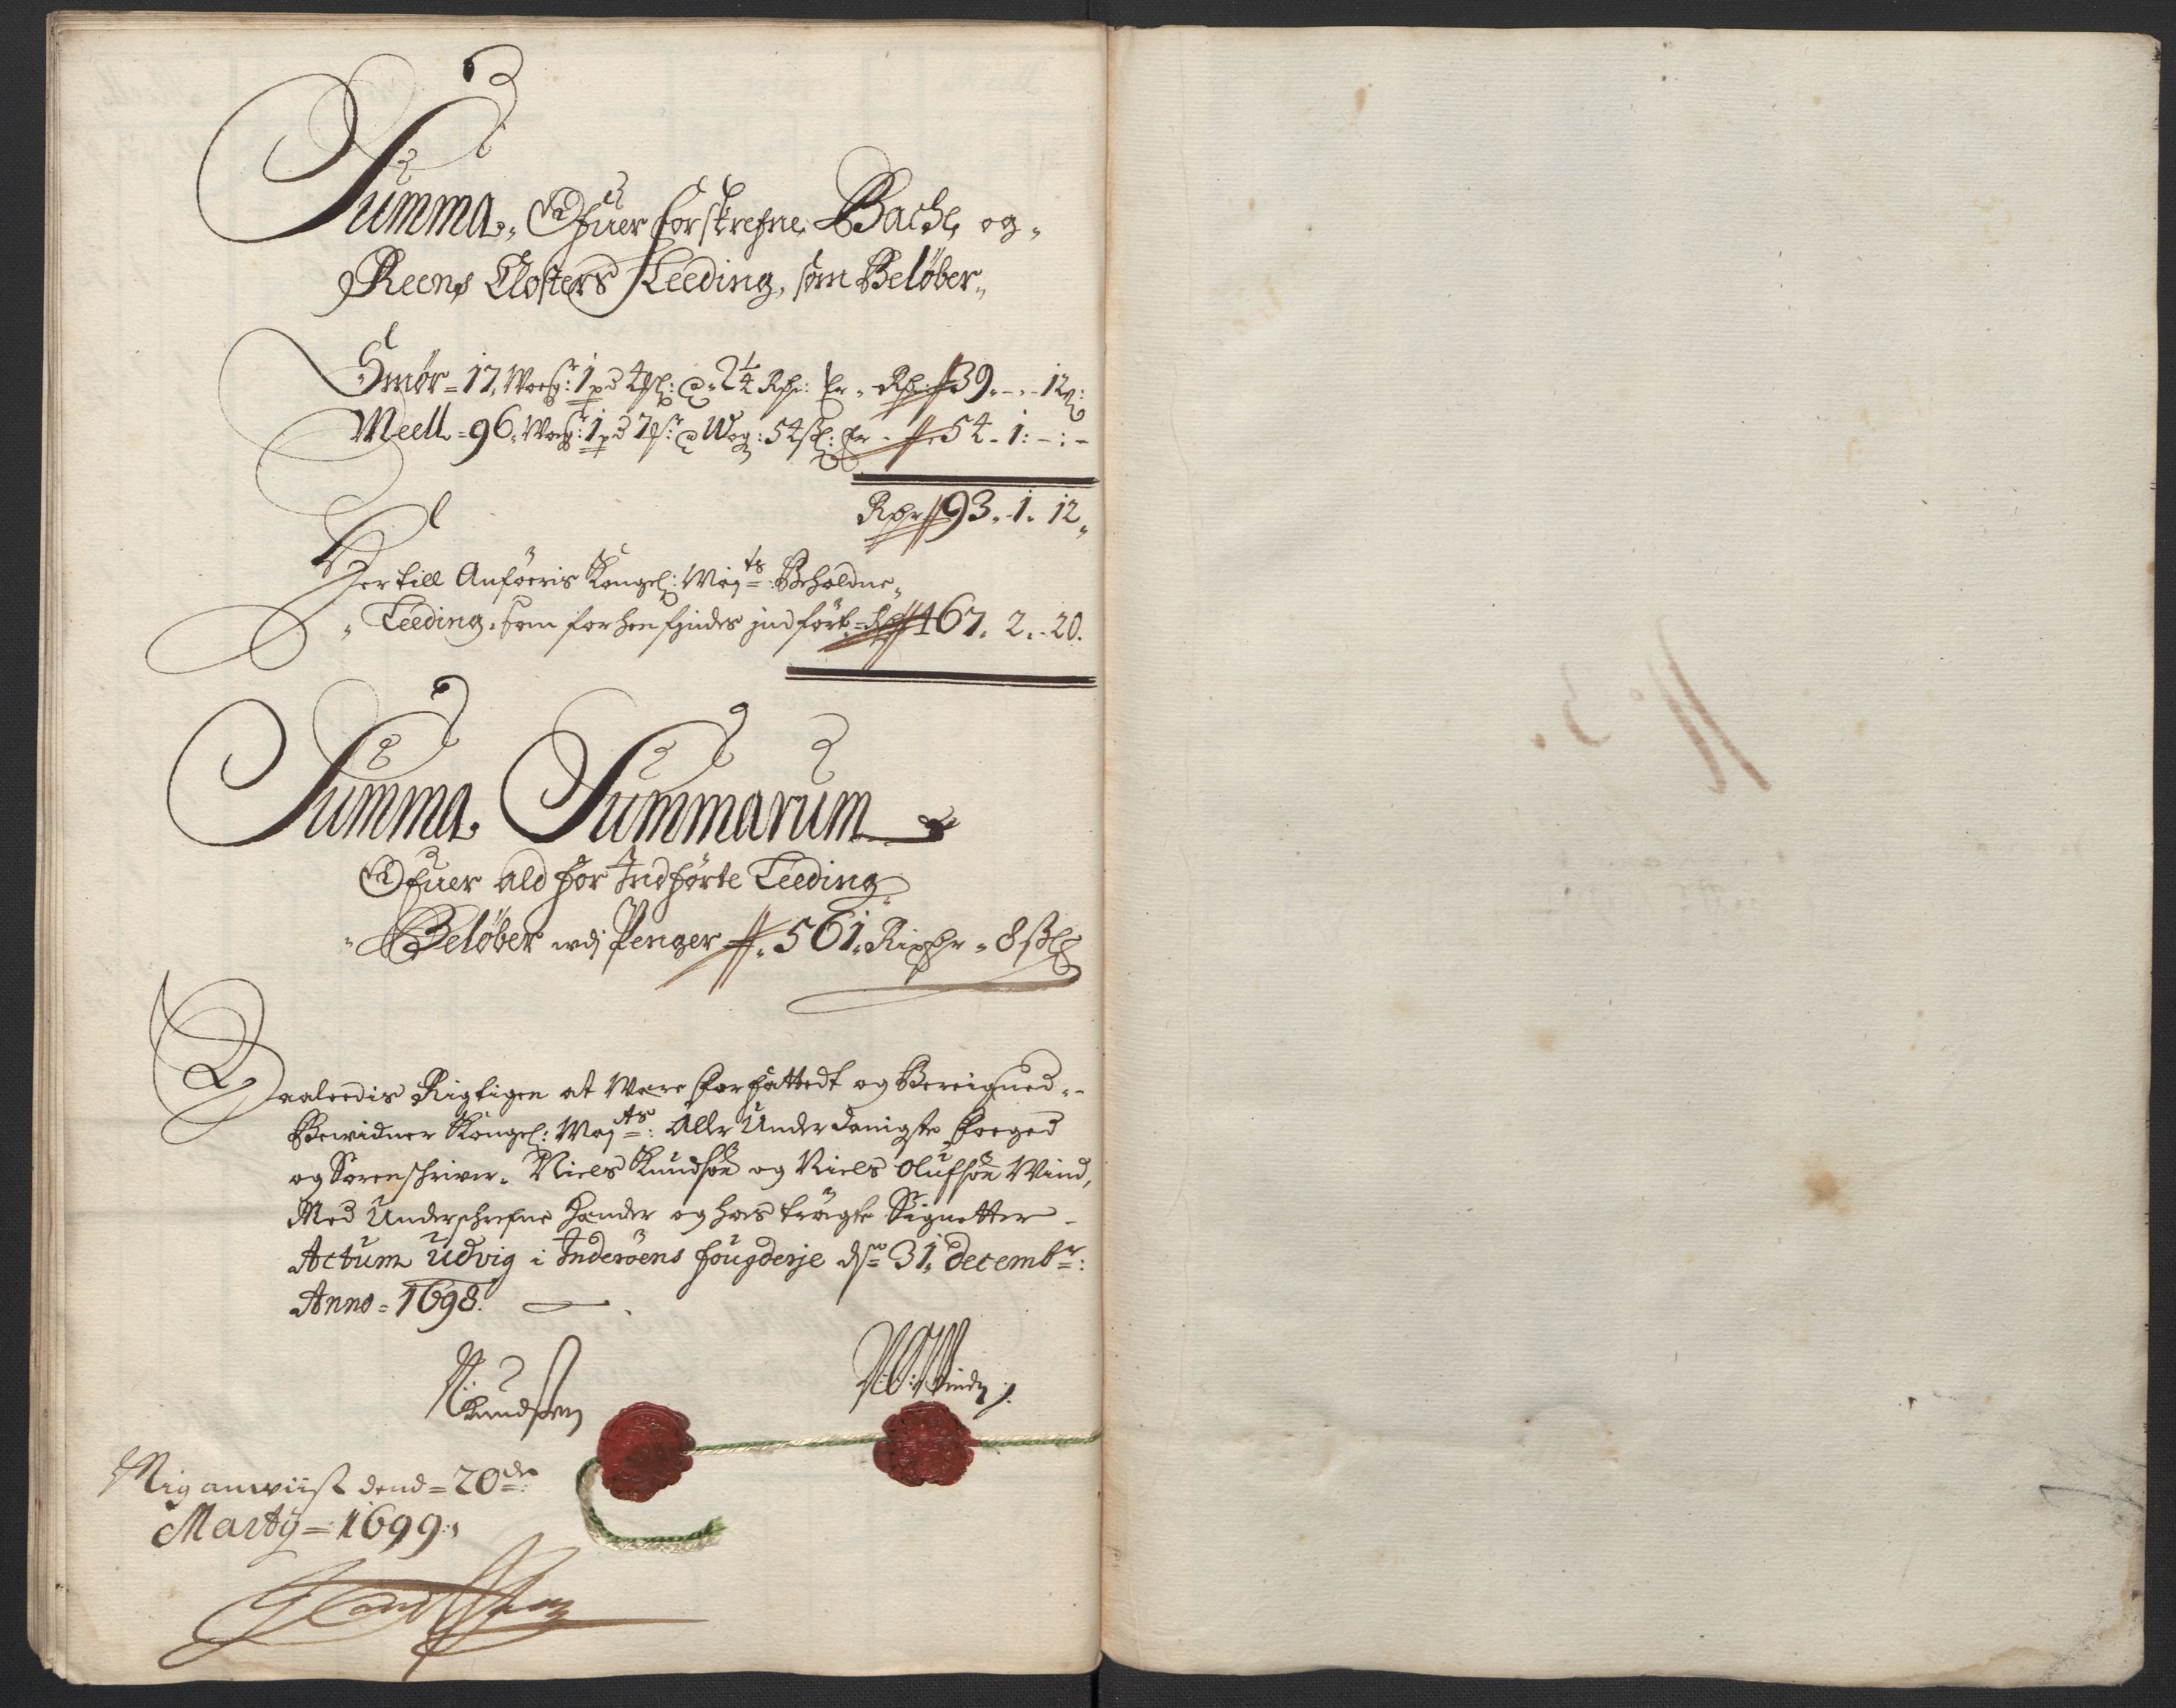 Summa, Ofuer forskrefne Bache og
Reens Closters Leeding, som Beløber,
Smør = 17, Woeg: 1 pd 4 @ 2¼ Rdr: Er - Rdr: 39 - - 12
Meell = 96, Woeg: 1 pd 7 @ Wog: 54 sl: Er - 54 - 1: - : -
Rdr 93. 1. 12
Hertill Anføeris Kongel: Maj ts Beholdne
Leeding, som forhen findes indført = 467. 2. 20.
Summa Summarum
Ofuer ald for Indførte Leeding
Beløber udj Penger 561 Rixdr - 8 sl
Saaleedis Rigtigen at Were forfattedt og Bereigned
Bewidner Kongel: Maj ts: Aller Underdanigste foeged
og Sorenschriver. Niels Knudsøn og Niels Olufsøn Wind,
Med Underschrefne Hender og hoes trøgte Signetter
Actum Udvig i Inderøens fougderje d. 31. decembr:
Anno = 1698.
N: Knudsen
NO: Wind
Mig anwiist dend = 20de:
Marty = 1699
N: 3.